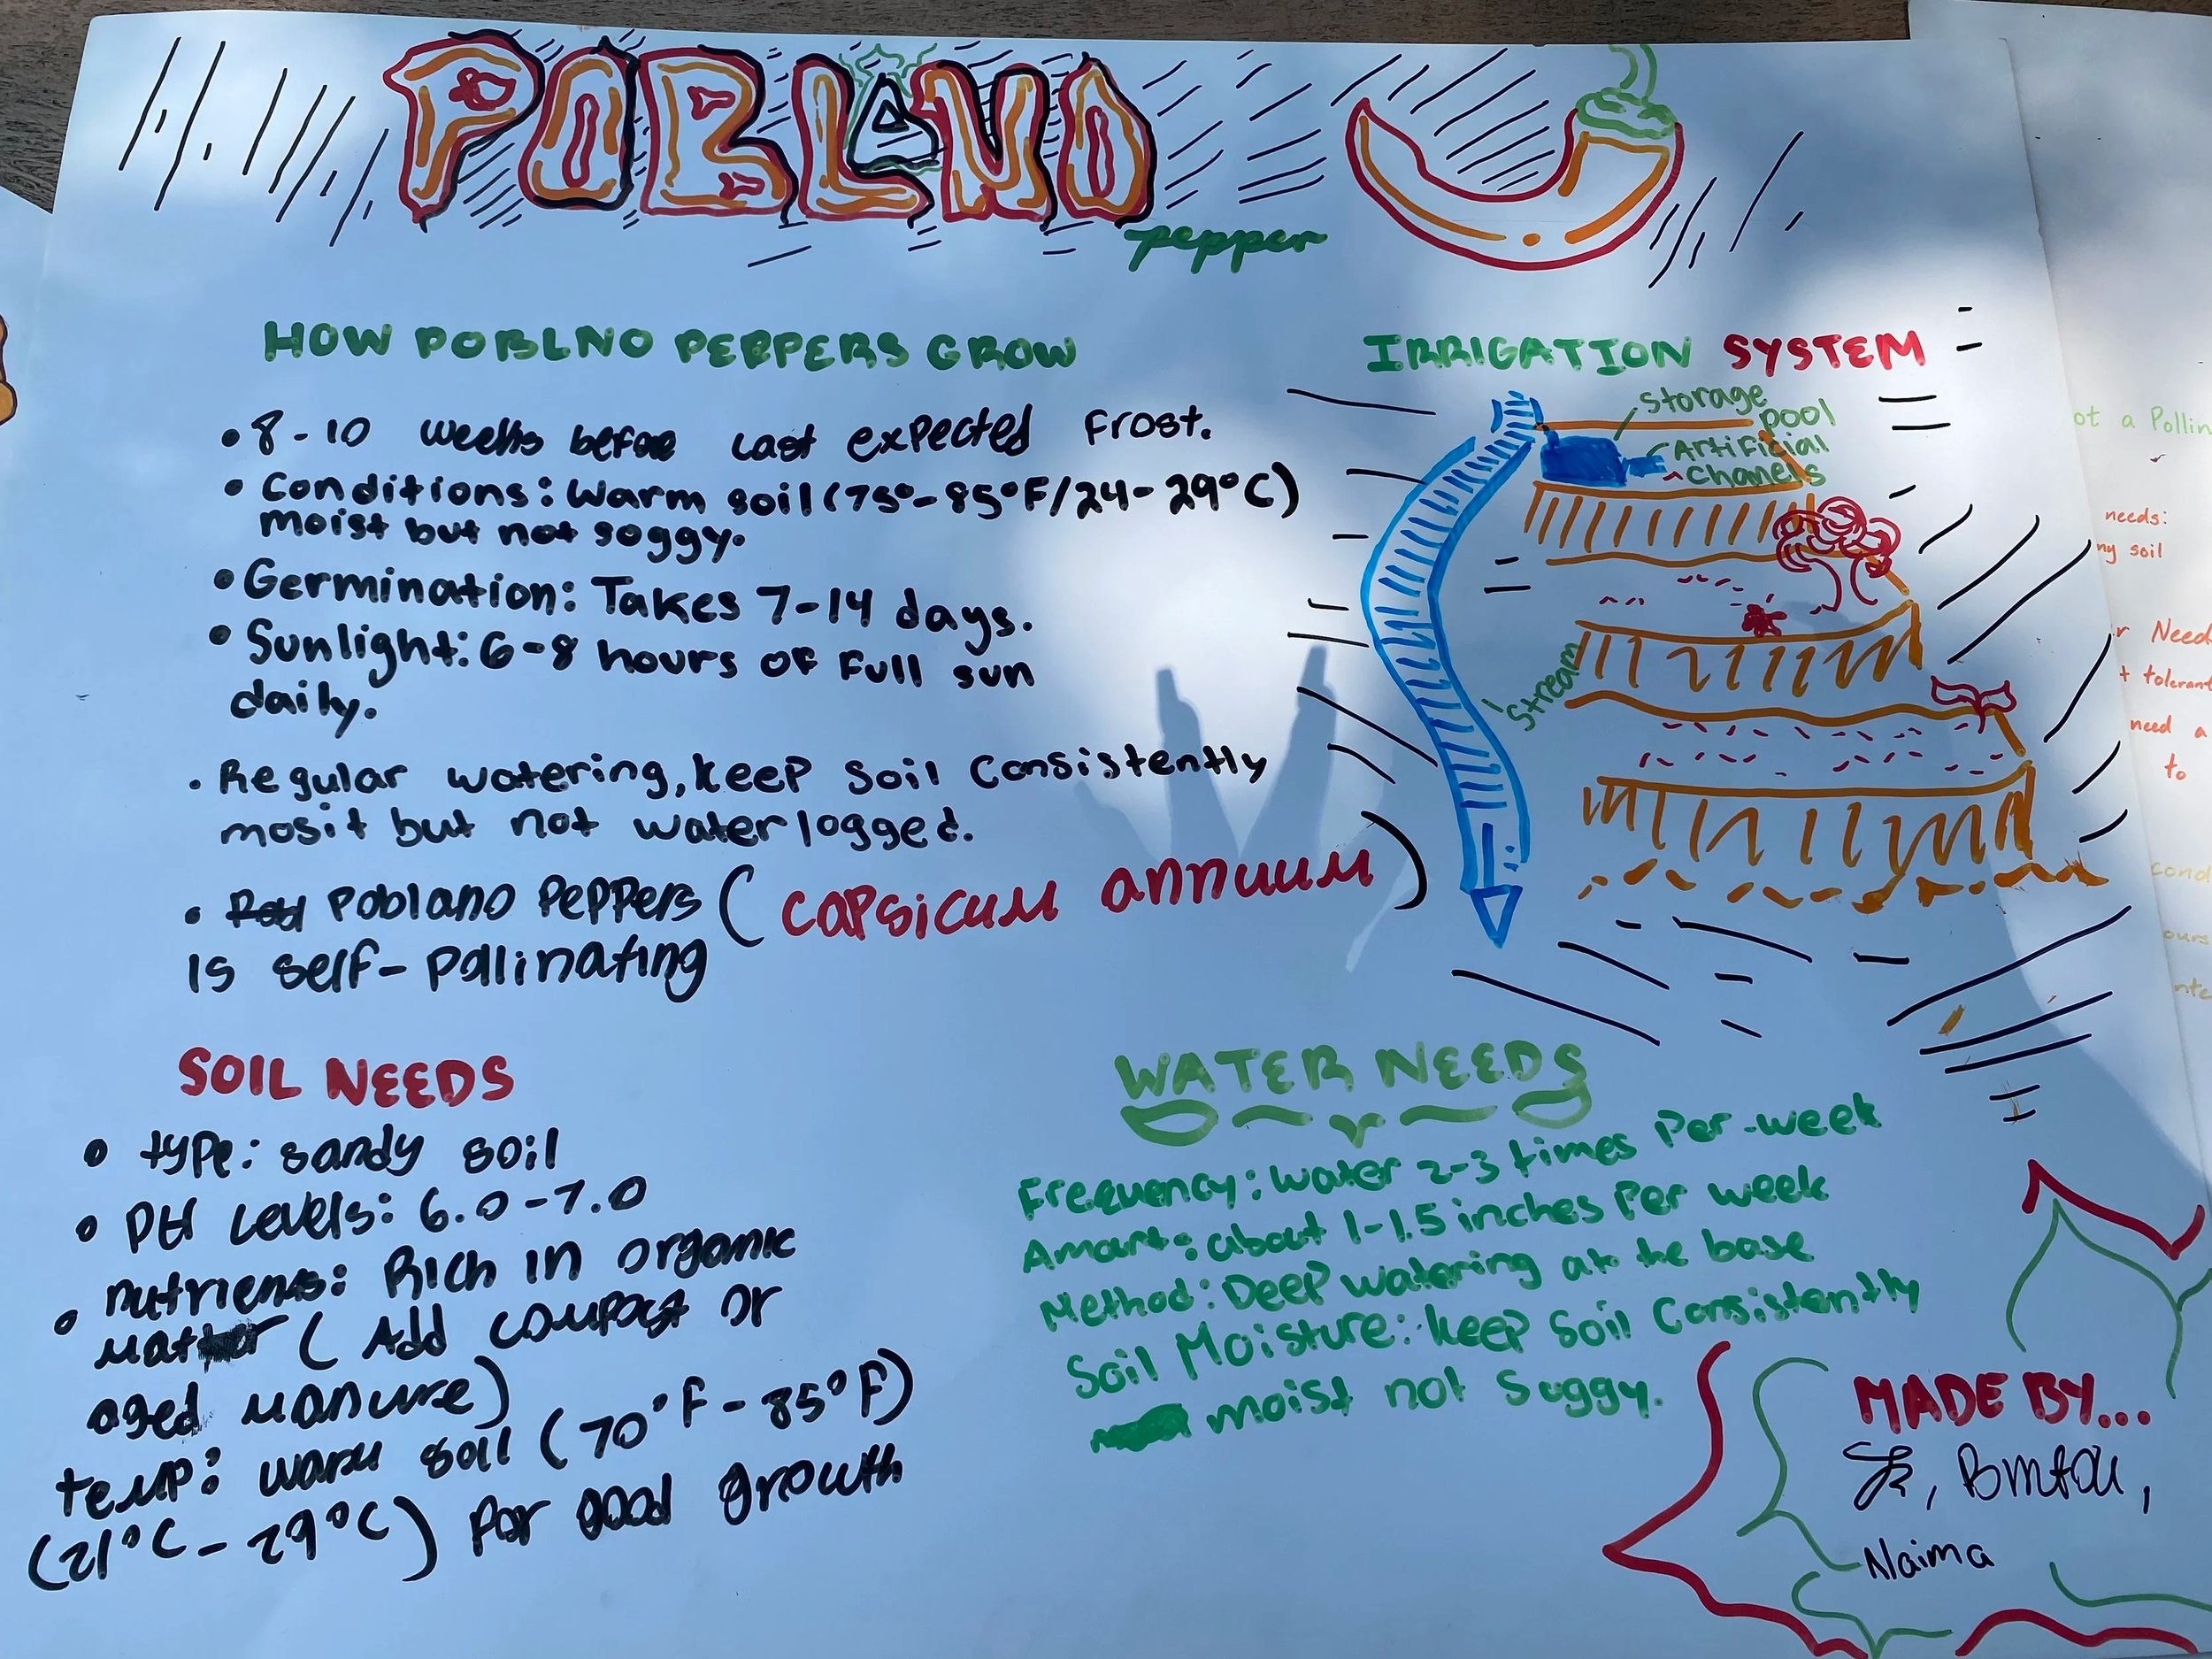 POBLANO
pepper
HOW POBLNO PEPPERS GROW
• 8-10 weeks before last expected frost.
• Conditions: Warm soil (75°-85°F/24-29°C)
moist but not soggy.
• Germination: Takes 7-14 days.
• Sunlight: 6-8 hours of full sun
daily.
• Regular watering, keep soil consistently
mosit but not waterlogged.
• Poblano Peppers (capsicum annuum)
is self-pollinating
IRRIGATION SYSTEM
storage
pool
Artificial
chanels
stream
SOIL NEEDS
• type: sandy soil
• PH Levels: 6.0-7.0
• nutriens: Rich in organic
matter (Add compost or
aged manure)
temp: warm soil (70°F-85°F)
(21°C-29°C) for good growth
WATER NEEDS
Frequency: water 2-3 times per-week
Amart: about 1-1.5 inches per week
Method: Deep watering at the base
Soil Moisture: keep soil consistently
moist not soggy.
MADE BY...
Naima
ot a Pollin
needs:
ny soil
r Need
t tolerant
need a
to
cond
ours